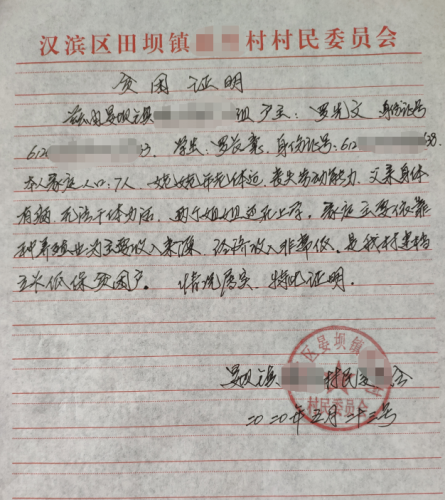 汉滨区田坝镇村村民委员会
贫困证明
兹由晏坝镇组户主:罗先文 身份证号
612 3. 学生:罗 身份证号:612
本人家庭人口:7人 姥姥年老体迈,丧失劳动能力,父亲身体
有病 无法干体力活,两个姐姐还在上学。家庭主要依靠
种养殖业为主要收入来源,经济收入非常低。是我村建档
立卡低保贫困户。 情况属实,特此证明.
晏坝镇村民委会
区晏坝镇村
村民委员会
二〇二〇年五月二十三号